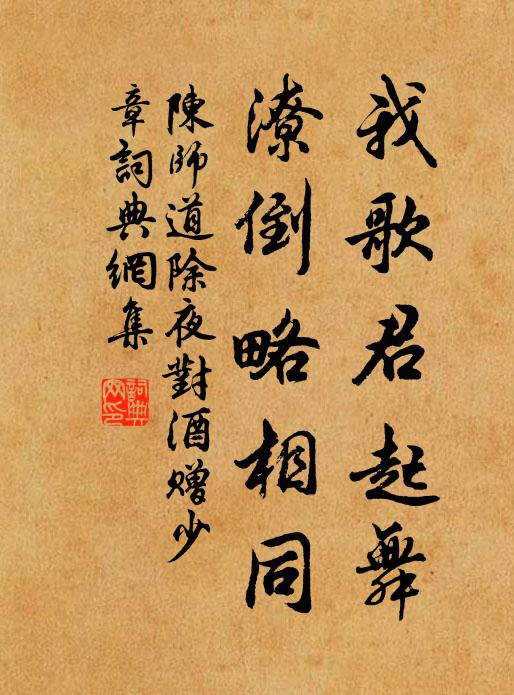 我歌君起舞
潦倒略相同
陳師道除夜對酒贈少
章詞典網集
詞典網印